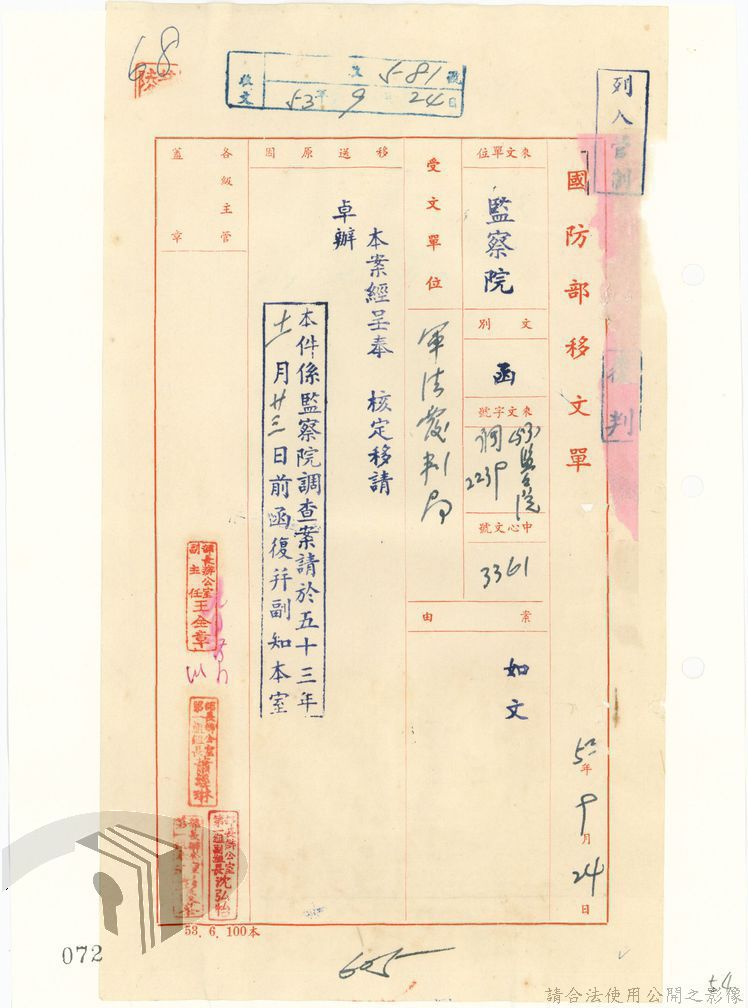 68
收文 字 581 號
53年 9月 24日
列入管制
後判
國防部移文單
53年9月24日
來文單位
監察院
文別
函
來文字號
(53)監台院調2239
中心文號
3361
案由
如文
受文單位
軍法覆判局
移送原因
本案經呈奉 核定移請
卓辦
本件係監察院調查案請於五十三年
十一月廿三日前函復并副知本室
各級主管
蓋章
部長辦公室
副主任王金章
部長辦公室
第一組組長
部長辦公室
第一組副組長沈弘怡
53. 6. 100本
072
605
54
請合法使用公開之影像